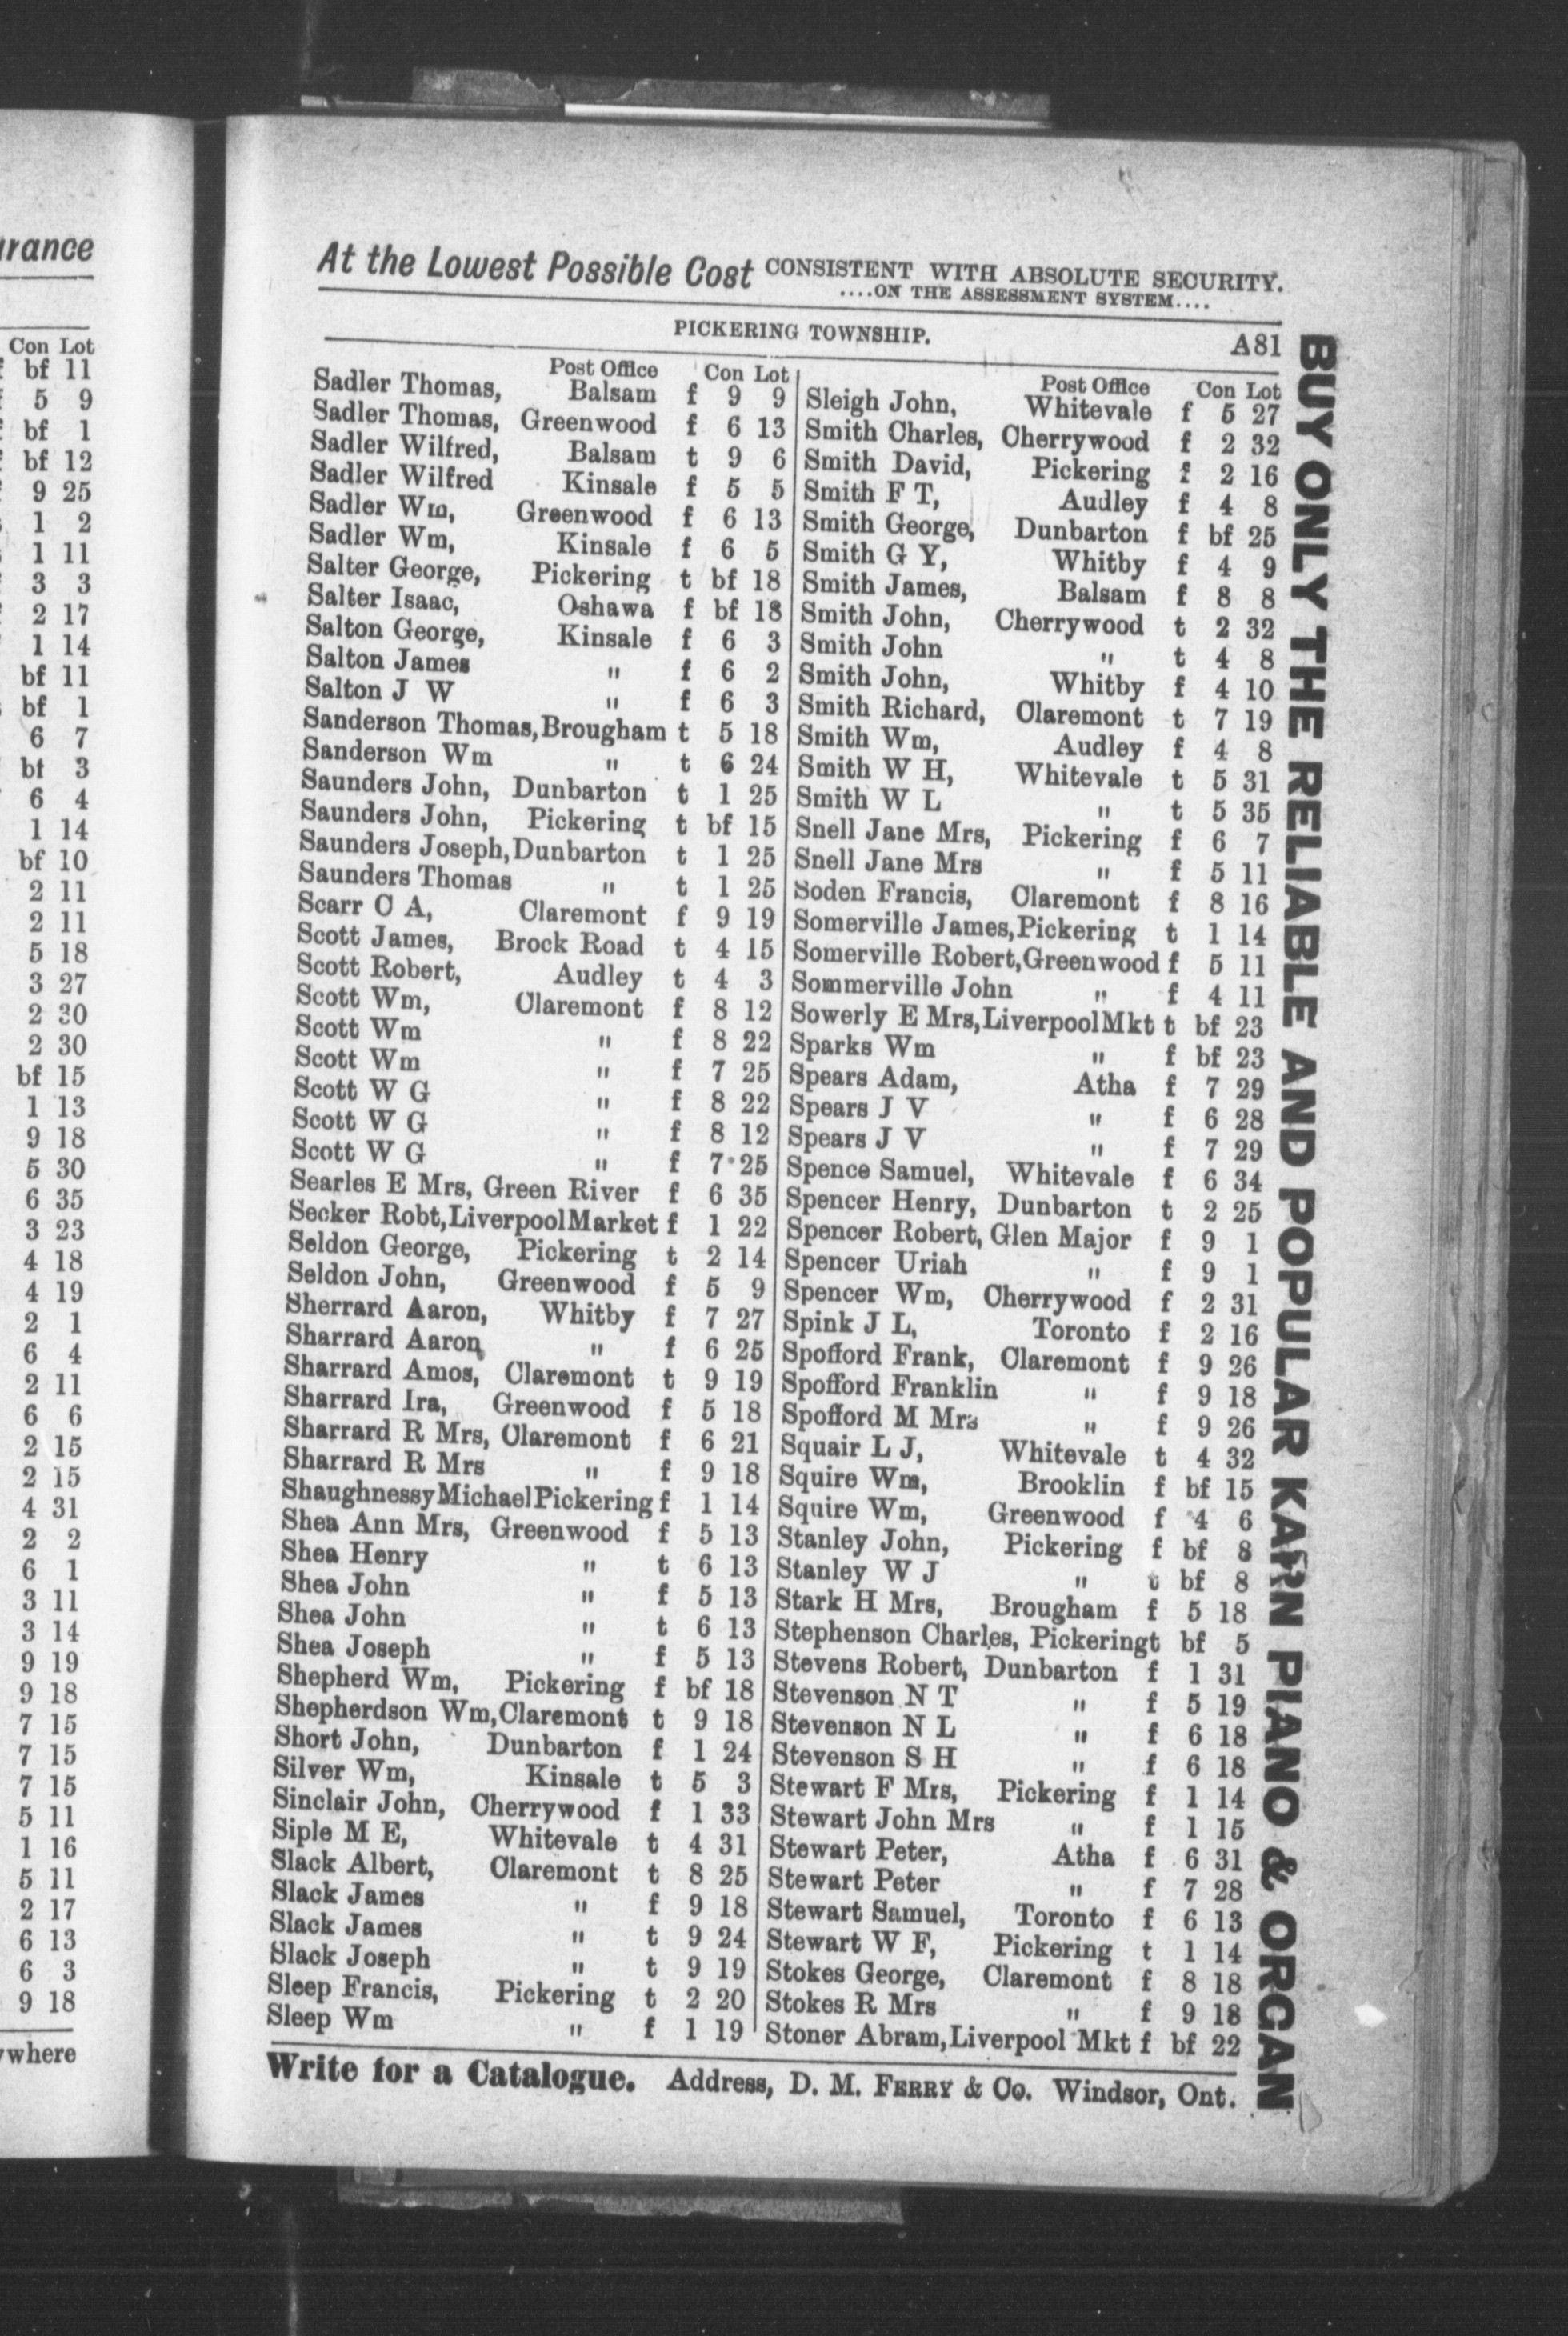 urance
Con Lot
f bf 11
f 5 9
f bf 1
f bf 12
f 9 25
1 2
1 11
3 3
2 17
1 14
bf 11
bf 1
6 7
bf 3
6 4
1 14
bf 10
2 11
2 11
5 18
3 27
2 30
2 30
bf 15
1 13
9 18
5 30
6 35
3 23
4 18
4 19
2 1
6 4
2 11
6 6
2 15
2 15
4 31
2 2
6 1
3 11
3 14
9 19
9 18
7 15
7 15
7 15
5 11
1 16
5 11
2 17
6 13
6 3
9 18
ywhere
At the Lowest Possible Cost CONSISTENT WITH ABSOLUTE SECURITY.
....ON THE ASSESSMENT SYSTEM....
PICKERING TOWNSHIP. A81
Post Office Con Lot
Sadler Thomas, Balsam f 9 9
Sadler Thomas, Greenwood f 6 13
Sadler Wilfred, Balsam t 9 6
Sadler Wilfred Kinsale f 5 5
Sadler Wm, Greenwood f 6 13
Sadler Wm, Kinsale f 6 5
Salter George, Pickering t bf 18
Salter Isaac, Oshawa f bf 18
Salton George, Kinsale f 6 3
Salton James " f 6 2
Salton J W " f 6 3
Sanderson Thomas, Brougham t 5 18
Sanderson Wm " t 6 24
Saunders John, Dunbarton t 1 25
Saunders John, Pickering t bf 15
Saunders Joseph, Dunbarton t 1 25
Saunders Thomas " t 1 25
Scarr C A, Claremont f 9 19
Scott James, Brock Road t 4 15
Scott Robert, Audley t 4 3
Scott Wm, Claremont f 8 12
Scott Wm " f 8 22
Scott Wm " f 7 25
Scott W G " f 8 22
Scott W G " f 8 12
Scott W G " f 7 25
Searles E Mrs, Green River f 6 35
Secker Robt, Liverpool Market f 1 22
Seldon George, Pickering t 2 14
Seldon John, Greenwood f 5 9
Sherrard Aaron, Whitby f 7 27
Sharrard Aaron " f 6 25
Sharrard Amos, Claremont t 9 19
Sharrard Ira, Greenwood f 5 18
Sharrard R Mrs, Claremont f 6 21
Sharrard R Mrs " f 9 18
Shaughnessy Michael Pickering f 1 14
Shea Ann Mrs, Greenwood f 5 13
Shea Henry " t 6 13
Shea John " f 5 13
Shea John " t 6 13
Shea Joseph " f 5 13
Shepherd Wm, Pickering f bf 18
Shepherdson Wm, Claremont t 9 18
Short John, Dunbarton f 1 24
Silver Wm, Kinsale t 5 3
Sinclair John, Cherrywood f 1 33
Siple M E, Whitevale t 4 31
Slack Albert, Claremont t 8 25
Slack James " f 9 18
Slack James " t 9 24
Slack Joseph " t 9 19
Sleep Francis, Pickering t 2 20
Sleep Wm " f 1 19
Post Office Con Lot
Sleigh John, Whitevale f 5 27
Smith Charles, Cherrywood f 2 32
Smith David, Pickering f 2 16
Smith F T, Audley f 4 8
Smith George, Dunbarton f bf 25
Smith G Y, Whitby f 4 9
Smith James, Balsam f 8 8
Smith John, Cherrywood t 2 32
Smith John " t 4 8
Smith John, Whitby f 4 10
Smith Richard, Claremont t 7 19
Smith Wm, Audley f 4 8
Smith W H, Whitevale t 5 31
Smith W L " t 5 35
Snell Jane Mrs, Pickering f 6 7
Snell Jane Mrs " f 5 11
Soden Francis, Claremont f 8 16
Somerville James, Pickering t 1 14
Somerville Robert, Greenwood f 5 11
Sommerville John " f 4 11
Sowerly E Mrs, Liverpool Mkt t bf 23
Sparks Wm " f bf 23
Spears Adam, Atha f 7 29
Spears J V " f 6 28
Spears J V " f 7 29
Spence Samuel, Whitevale f 6 34
Spencer Henry, Dunbarton t 2 25
Spencer Robert, Glen Major f 9 1
Spencer Uriah " f 9 1
Spencer Wm, Cherrywood f 2 31
Spink J L, Toronto f 2 16
Spofford Frank, Claremont f 9 26
Spofford Franklin " f 9 18
Spofford M Mrs " f 9 26
Squair L J, Whitevale t 4 32
Squire Wm, Brooklin f bf 15
Squire Wm, Greenwood f 4 6
Stanley John, Pickering f bf 8
Stanley W J " t bf 8
Stark H Mrs, Brougham f 5 18
Stephenson Charles, Pickering t bf 5
Stevens Robert, Dunbarton f 1 31
Stevenson N T " f 5 19
Stevenson N L " f 6 18
Stevenson S H " f 6 18
Stewart F Mrs, Pickering f 1 14
Stewart John Mrs " f 1 15
Stewart Peter, Atha f 6 31
Stewart Peter " f 7 28
Stewart Samuel, Toronto f 6 13
Stewart W F, Pickering t 1 14
Stokes George, Claremont f 8 18
Stokes R Mrs " f 9 18
Stoner Abram, Liverpool Mkt f bf 22
Write for a Catalogue. Address, D. M. FERRY & Co. Windsor, Ont.
BUY ONLY THE RELIABLE AND POPULAR KARN PIANO & ORGAN